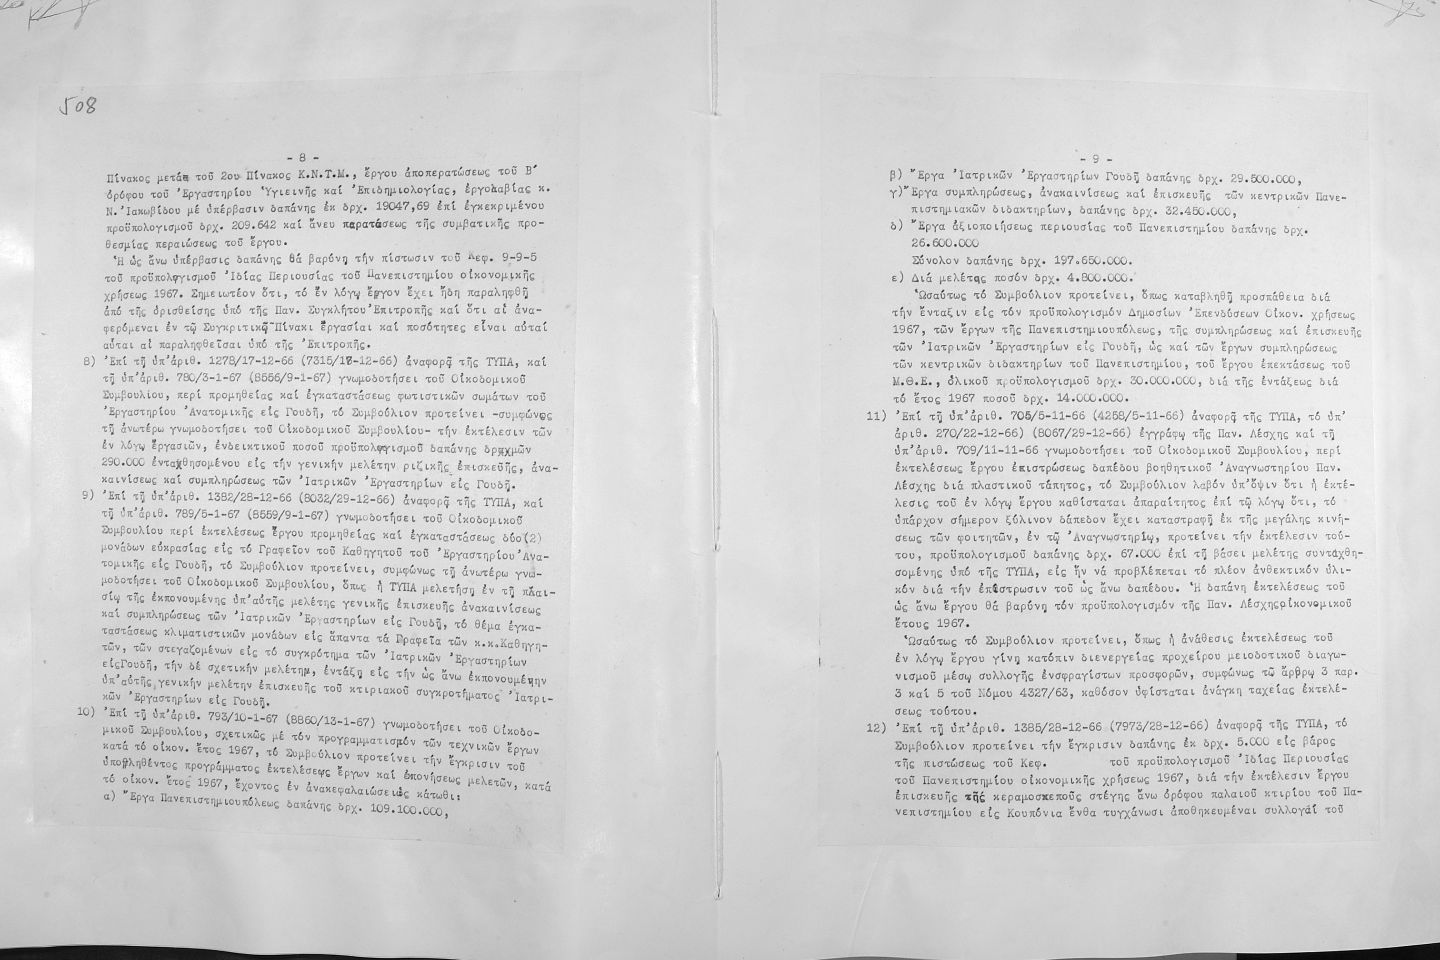 508
- 8 -
Πίνακος μετά τοῦ 2ου Πίνακος Κ.Ν.Τ.Μ., ἔργου ἀποπερατώσεως τοῦ Β΄
ὀρόφου τοῦ Ἐργαστηρίου Ὑγιεινῆς καί Ἐπιδημιολογίας, ἐργολαβίας κ.
Ν. Ἰακωβίδου μέ ὑπέρβασιν δαπάνης ἐκ δρχ. 19047,69 ἐπί ἐγκεκριμένου
προϋπολογισμοῦ δρχ. 209.642 καί ἄνευ παρατάσεως τῆς συμβατικῆς προ-
θεσμίας περαιώσεως τοῦ ἔργου.
Ἡ ὡς ἄνω ὑπέρβασις δαπάνης θά βαρύνῃ τήν πίστωσιν τοῦ Κεφ. 9-9-5
τοῦ προϋπολογισμοῦ Ἰδίας Περιουσίας τοῦ Πανεπιστημίου οἰκονομικῆς
χρήσεως 1967. Σημειωτέον ὅτι, τό ἐν λόγῳ ἔργον ἔχει ἤδη παραληφθῆ
ἀπό τῆς ὁρισθείσης ὑπό τῆς Παν. Συγκλήτου Ἐπιτροπῆς καί ὅτι αἱ ἀνα-
φερόμεναι ἐν τῷ Συγκριτικῷ Πίνακι ἐργασίαι καί ποσότητες εἶναι αὗται
αὗται αἱ παραληφθεῖσαι ὑπό τῆς Ἐπιτροπῆς.
8) Ἐπί τῇ ὑπ'ἀριθ. 1278/17-12-66 (7315/17-12-66) ἀναφορᾷ τῆς ΤΥΠΑ, καί
τῇ ὑπ'ἀριθ. 780/3-1-67 (8556/9-1-67) γνωμοδοτήσει τοῦ Οἰκοδομικοῦ
Συμβουλίου, περί προμηθείας καί ἐγκαταστάσεως φωτιστικῶν σωμάτων τοῦ
Ἐργαστηρίου Ἀνατομικῆς εἰς Γουδῆ, τό Συμβούλιον προτείνει -συμφώνως
τῇ ἀνωτέρω γνωμοδοτήσει τοῦ Οἰκοδομικοῦ Συμβουλίου- τήν ἐκτέλεσιν τῶν
ἐν λόγῳ ἐργασιῶν, ἐνδεικτικοῦ ποσοῦ προϋπολογισμοῦ δαπάνης δραχμῶν
290.000 ἐνταχθησομένου εἰς τήν γενικήν μελέτην ριζικῆς ἐπισκευῆς, ἀνα-
καινίσεως καί συμπληρώσεως τῶν Ἰατρικῶν Ἐργαστηρίων εἰς Γουδῆ.
9) Ἐπί τῇ ὑπ'ἀριθ. 1382/28-12-66 (8032/29-12-66) ἀναφορᾷ τῆς ΤΥΠΑ, καί
τῇ ὑπ'ἀριθ. 789/5-1-67 (8559/9-1-67) γνωμοδοτήσει τοῦ Οἰκοδομικοῦ
Συμβουλίου περί ἐκτελέσεως ἔργου προμηθείας καί ἐγκαταστάσεως δύο(2)
μονάδων εὐκρασίας εἰς τό Γραφεῖον τοῦ Καθηγητοῦ τοῦ Ἐργαστηρίου Ἀνα-
τομικῆς εἰς Γουδῆ, τό Συμβούλιον προτείνει, συμφώνως τῇ ἀνωτέρω γνω-
μοδοτήσει τοῦ Οἰκοδομικοῦ Συμβουλίου, ὅπως ἡ ΤΥΠΑ μελετήσῃ ἐν τῇ πλαι-
σίῳ τῆς ἐκπονουμένης ὑπ'αὐτῆς μελέτης γενικῆς ἐπισκευῆς ἀνακαινίσεως
καί συμπληρώσεως τῶν Ἰατρικῶν Ἐργαστηρίων εἰς Γουδῆ, τό θέμα ἐγκα-
ταστάσεως κλιματιστικῶν μονάδων εἰς ἅπαντα τά Γραφεῖα τῶν κ.κ.Καθηγη-
τῶν, τῶν στεγαζομένων εἰς τό συγκρότημα τῶν Ἰατρικῶν Ἐργαστηρίων
εἰςΓουδῆ, τήν δέ σχετικήν μελέτην, ἐντάξῃ εἰς τήν ὡς ἄνω ἐκπονουμένην
ὑπ'αὐτῆς γενικήν μελέτην ἐπισκευῆς τοῦ κτιριακοῦ συγκροτήματος Ἰατρι-
κῶν Ἐργαστηρίων εἰς Γουδῆ.
10) Ἐπί τῇ ὑπ'ἀριθ. 793/10-1-67 (8860/13-1-67) γνωμοδοτήσει τοῦ Οἰκοδο-
μικοῦ Συμβουλίου, σχετικῶς μέ τόν προγραμματισμόν τῶν τεχνικῶν ἔργων
κατά τό οἰκον. ἔτος 1967, τό Συμβούλιον προτείνει τήν ἔγκρισιν τοῦ
ὑποβληθέντος προγράμματος ἐκτελέσεως ἔργων καί ἐκπονήσεως μελετῶν, κατά
τό οἰκον. ἔτος 1967, ἔχοντος ἐν ἀνακεφαλαιώσει ὡς κάτωθι:
α) Ἔργα Πανεπιστημιουπόλεως δαπάνης δρχ. 109.100.000,
- 9 -
β) Ἔργα Ἰατρικῶν Ἐργαστηρίων Γουδῆ δαπάνης δρχ. 29.500.000,
γ) Ἔργα συμπληρώσεως, ἀνακαινίσεως καί ἐπισκευῆς τῶν κεντρικῶν Πανε-
πιστημιακῶν διδακτηρίων, δαπάνης δρχ. 32.450.000,
δ) Ἔργα ἀξιοποιήσεως περιουσίας τοῦ Πανεπιστημίου δαπάνης δρχ.
26.600.000
Σύνολον δαπάνης δρχ. 197.650.000.
ε) Διά μελέτας ποσόν δρχ. 4.800.000.
Ὡσαύτως τό Συμβούλιον προτείνει, ὅπως καταβληθῇ προσπάθεια διά
τήν ἔνταξιν εἰς τόν προϋπολογισμόν Δημοσίων Ἐπενδύσεων Οἰκον. χρήσεως
1967, τῶν ἔργων τῆς Πανεπιστημιουπόλεως, τῆς συμπληρώσεως καί ἐπισκευῆς
τῶν Ἰατρικῶν Ἐργαστηρίων εἰς Γουδῆ, ὡς καί τῶν ἔργων συμπληρώσεως
τῶν κεντρικῶν διδακτηρίων τοῦ Πανεπιστημίου, τοῦ ἔργου ἐπεκτάσεως τοῦ
Μ.Θ.Ε., ὁλικοῦ προϋπολογισμοῦ δρχ. 30.000.000, διά τῆς ἐντάξεως διά
τό ἔτος 1967 ποσοῦ δρχ. 14.000.000.
11) Ἐπί τῇ ὑπ'ἀριθ. 705/5-11-66 (4258/5-11-66) ἀναφορᾷ τῆς ΤΥΠΑ, τό ὑπ'
ἀριθ. 270/22-12-66) (8067/29-12-66) ἐγγράφῳ τῆς Παν. Λέσχης καί τῇ
ὑπ'ἀριθ. 709/11-11-66 γνωμοδοτήσει τοῦ Οἰκοδομικοῦ Συμβουλίου, περί
ἐκτελέσεως ἔργου ἐπιστρώσεως δαπέδου βοηθητικοῦ Ἀναγνωστηρίου Παν.
Λέσχης διά πλαστικοῦ τάπητος, τό Συμβούλιον λαβόν ὑπ'ὄψιν ὅτι ἡ ἐκτέ-
λεσις τοῦ ἐν λόγῳ ἔργου καθίσταται ἀπαραίτητος ἐπί τῷ λόγῳ ὅτι, τό
ὑπάρχον σήμερον ξύλινον δάπεδον ἔχει καταστραφῆ ἐκ τῆς μεγάλης κινή-
σεως τῶν φοιτητῶν, ἐν τῷ Ἀναγνωστηρίῳ, προτείνει τήν ἐκτέλεσιν τού-
του, προϋπολογισμοῦ δαπάνης δρχ. 67.000 ἐπί τῇ βάσει μελέτης συνταχθη-
σομένης ὑπό τῆς ΤΥΠΑ, εἰς ἥν νά προβλέπεται τό πλέον ἀνθεκτικόν ὑλι-
κόν διά τήν ἐπίστρωσιν τοῦ ὡς ἄνω δαπέδου. Ἡ δαπάνη ἐκτελέσεως τοῦ
ὡς ἄνω ἔργου θά βαρύνῃ τόν προϋπολογισμόν τῆς Παν. Λέσχης οἰκονομικοῦ
ἔτους 1967.
Ὡσαύτως τό Συμβούλιον προτείνει, ὅπως ἡ ἀνάθεσις ἐκτελέσεως τοῦ
ἐν λόγῳ ἔργου γίνῃ κατόπιν διενεργείας προχείρου μειοδοτικοῦ διαγω-
νισμοῦ μέσῳ συλλογῆς ἐνσφραγίστων προσφορῶν, συμφώνως τῷ ἄρθρῳ 3 παρ.
3 καί 5 τοῦ Νόμου 4327/63, καθόσον ὑφίσταται ἀνάγκη ταχείας ἐκτελέ-
σεως τούτου.
12) Ἐπί τῇ ὑπ'ἀριθ. 1385/28-12-66 (7973/28-12-66) ἀναφορᾷ τῆς ΤΥΠΑ, τό
Συμβούλιον προτείνει τήν ἔγκρισιν δαπάνης ἐκ δρχ. 5.000 εἰς βάρος
τῆς πιστώσεως τοῦ Κεφ. τοῦ προϋπολογισμοῦ Ἰδίας Περιουσίας
τοῦ Πανεπιστημίου οἰκονομικῆς χρήσεως 1967, διά τήν ἐκτέλεσιν ἔργου
ἐπισκευῆς τῆς κεραμοσκεποῦς στέγης ἄνω ὀρόφου παλαιοῦ κτιρίου τοῦ Πα-
νεπιστημίου εἰς Κουπόνια ἔνθα τυγχάνωσι ἀποθηκευμέναι συλλογαί τοῦ